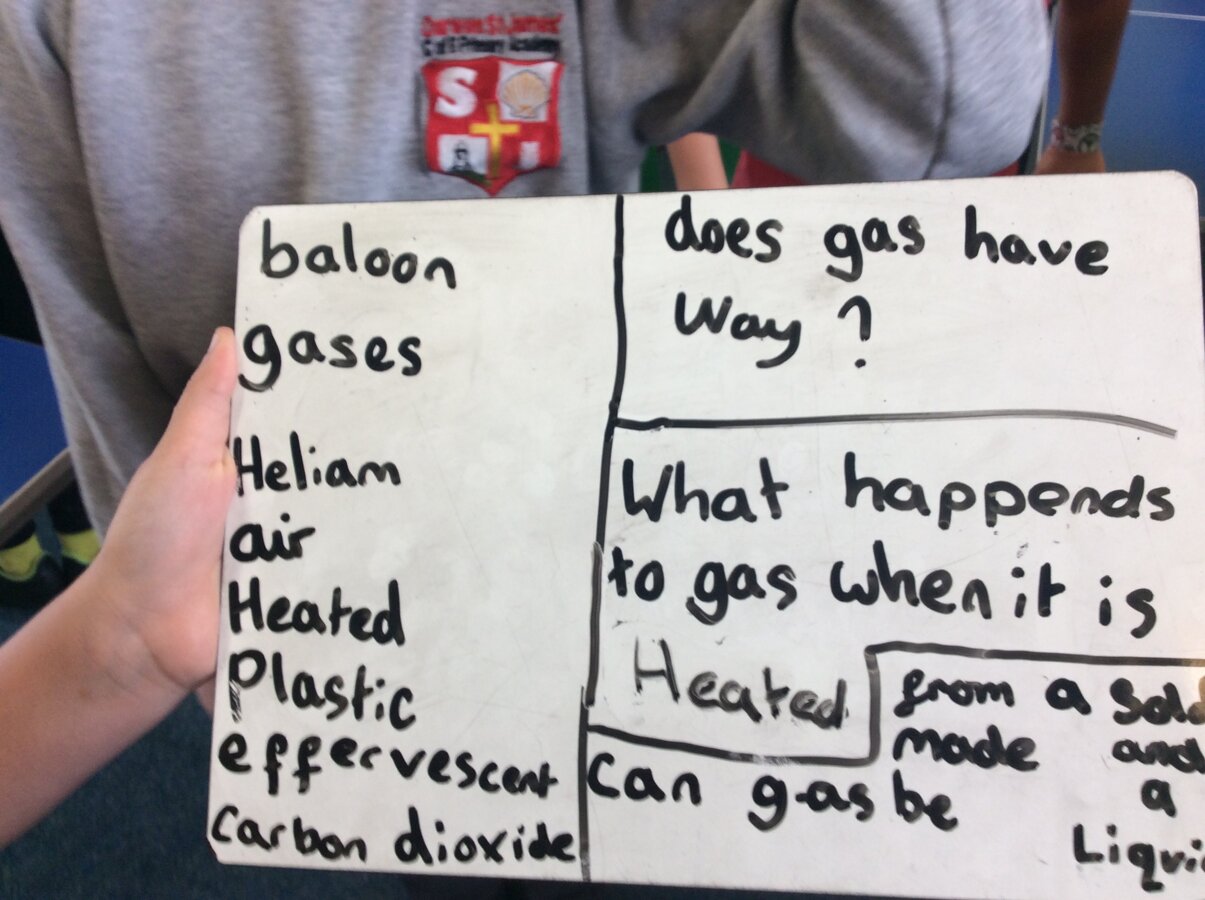 C of E Primary Academy
S
baloon
gases
Heliam
air
Heated
Plastic
effervescent
Carbon dioxide
does gas have
Way ?
What happends
to gas when it is
Heated
can gas be
made
from a
and
a